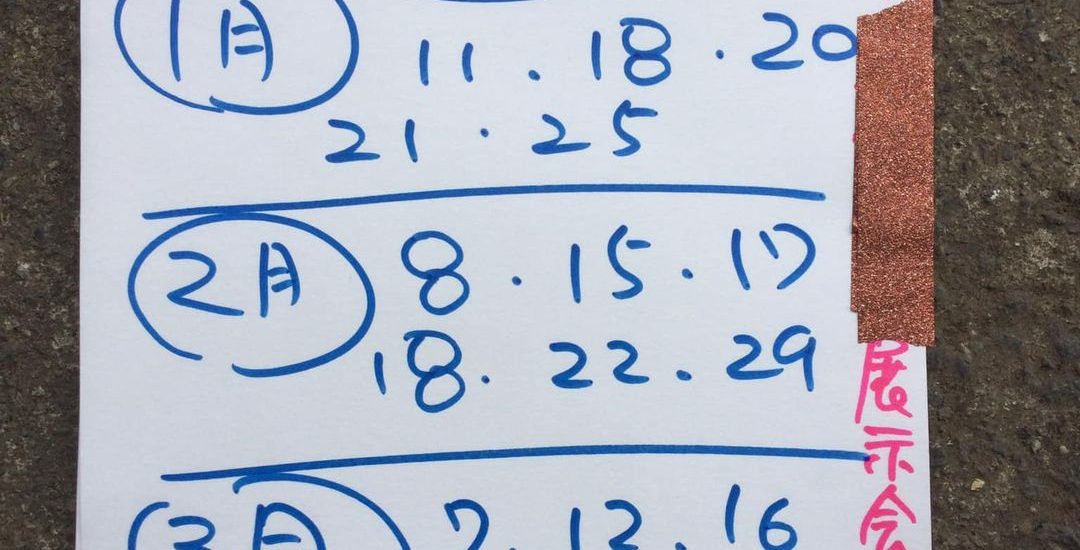 1月 11.18.20
21.25
2月 8.15.17
18.22.29
3月 7.
16
展示会